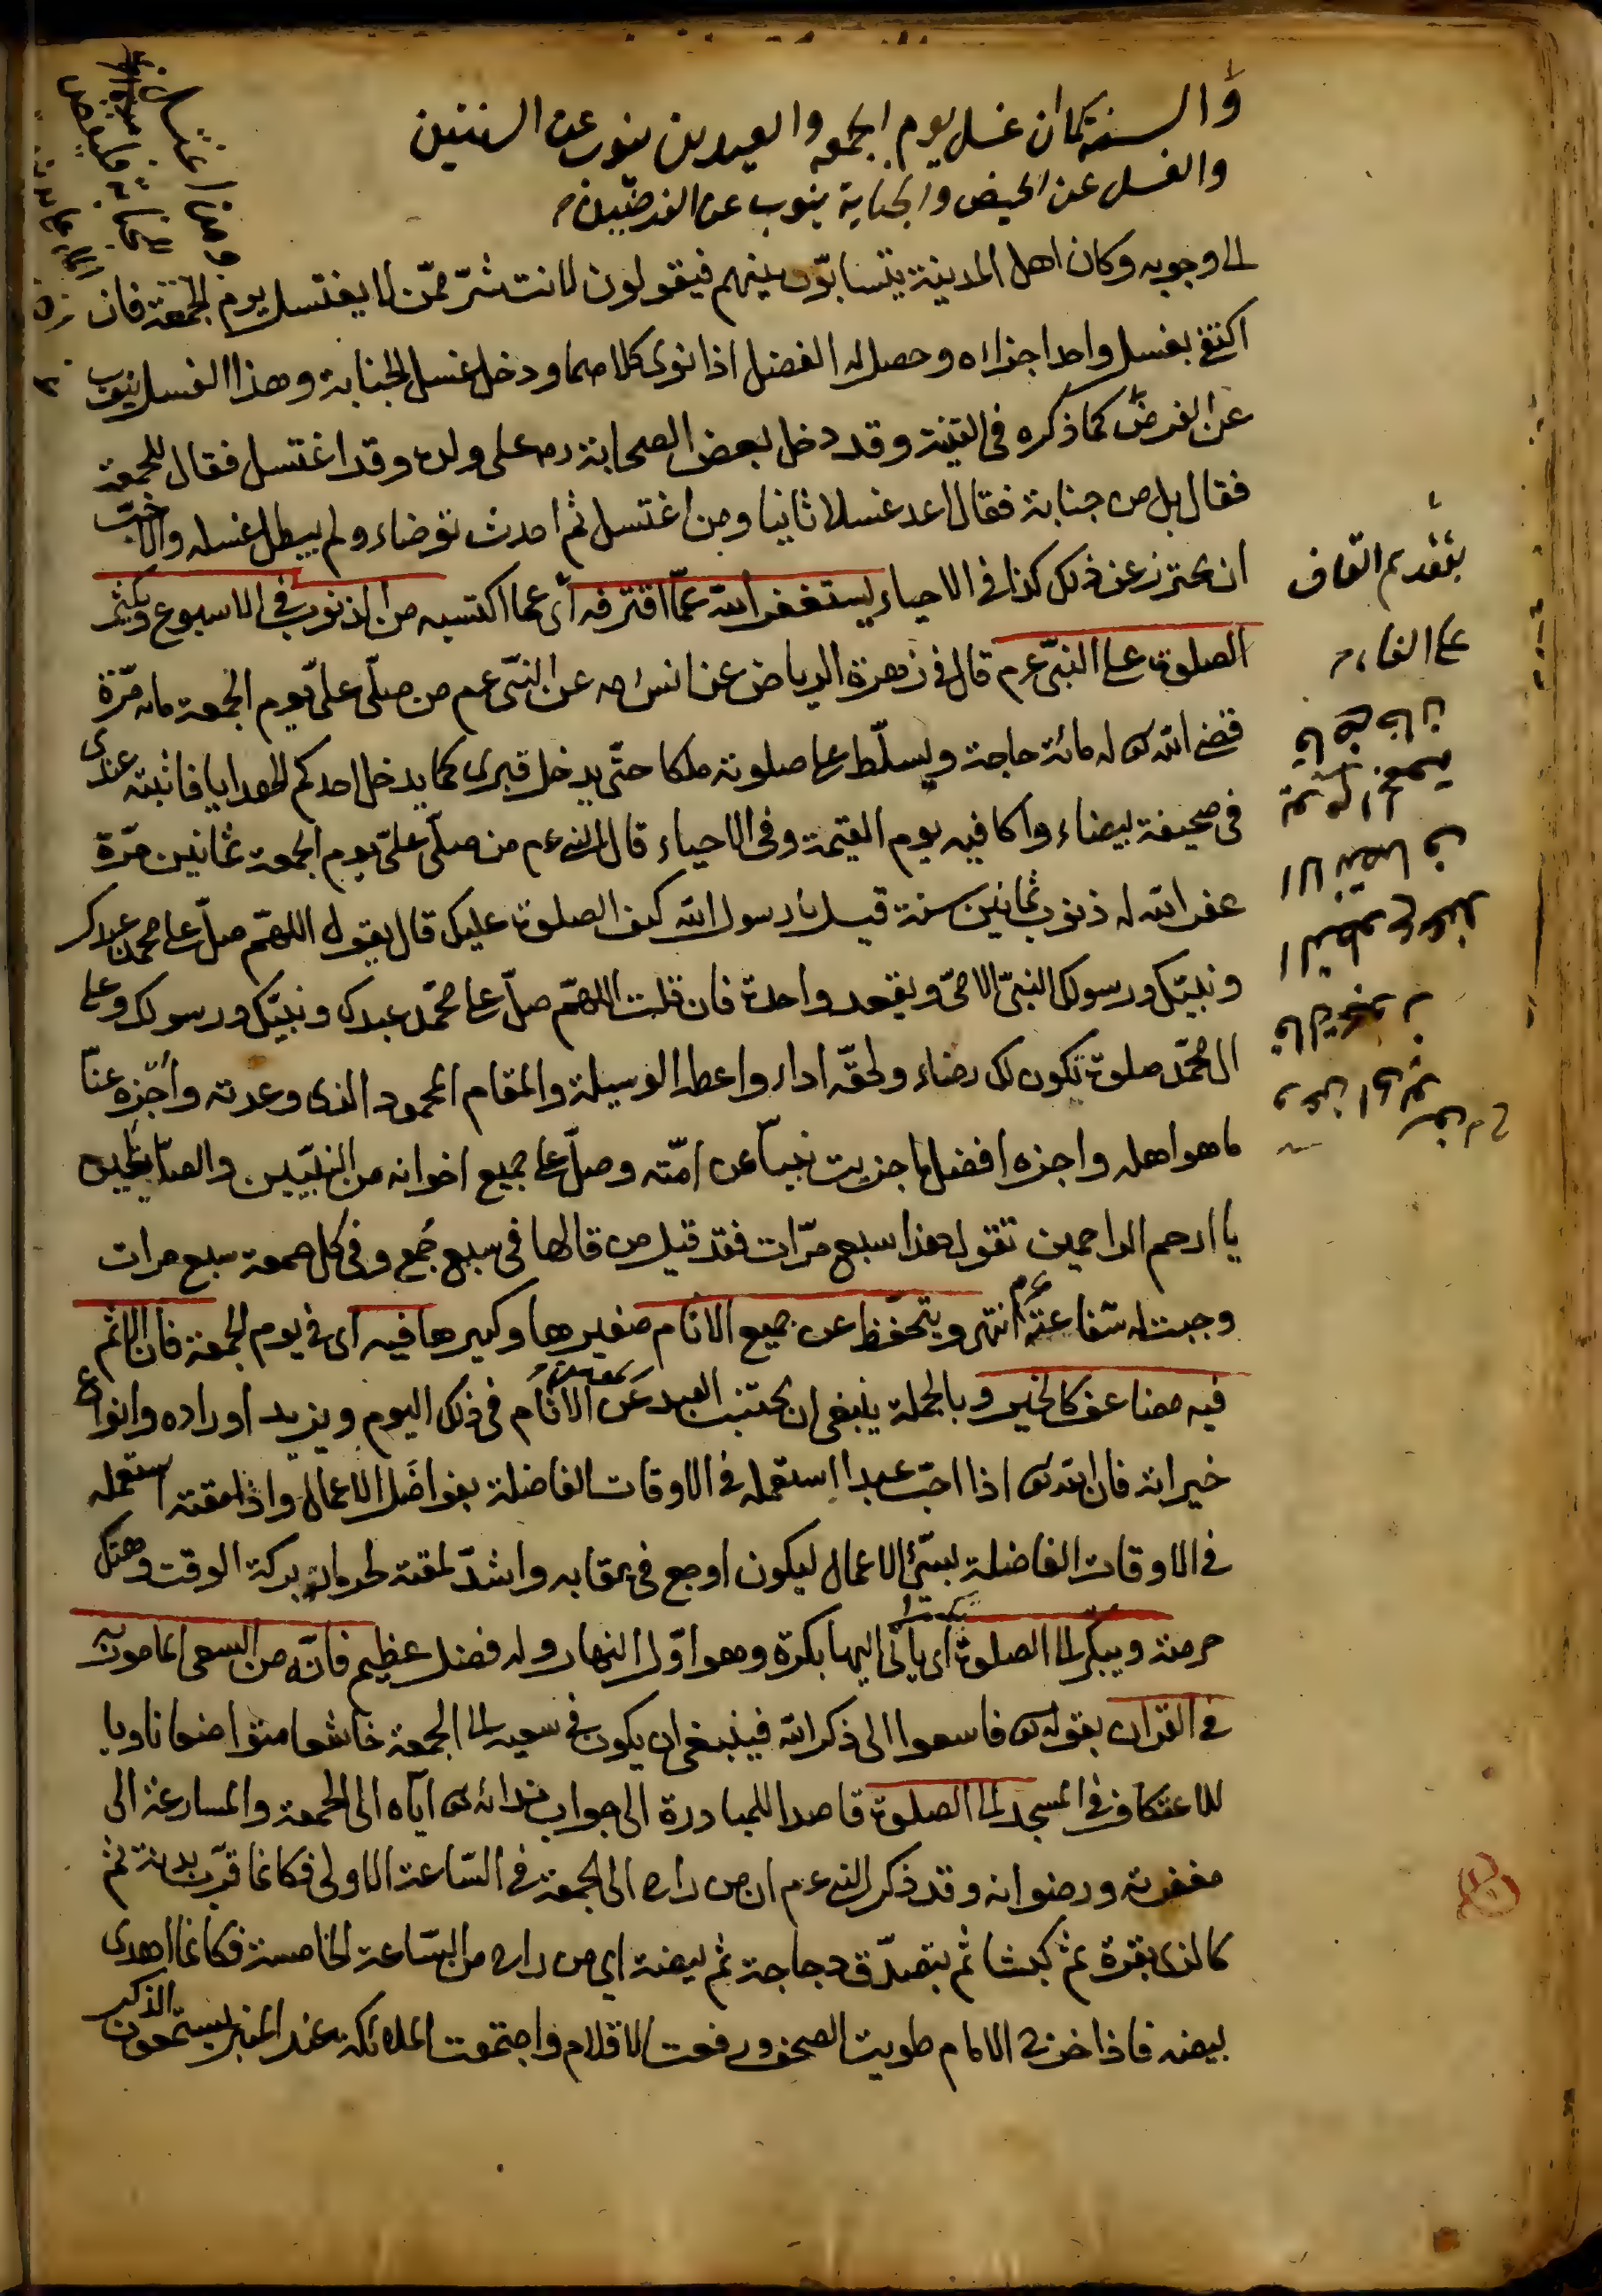 والسنة كما ان غسل يوم الجمعه والعيدين ينوب عن السنتين
والغسل عن الحيض والجنابة ينوب عن الفرضين
الى وجوبه وكان اهل المدينة يتسابّون بينهم فيقولون لانت شرّ ممّن لا يغتسل يوم الجمعة فان
اكتفى بغسل واحد اجزاه وحصل له الفضل اذا نوى كلاهما ودخل غسل الجنابة وهذا الغسل ينوب
عن الفرض كما ذكره فى القنية وقد دخل بعض الصحابة رم على ولده وقد اغتسل فقال للجمعة
فقال بل من جنابة فقال اعد غسلا ثانيا ومن اغتسل ثم احدث توضاء ولم يبطل غسله والاحبّ
ان يحترز عن ذلك كذا فى الاحياء ليستغفر الله عمّا اقترفه اى عما اكتسبه من الذنوب فى الاسبوع ويكثر
الصلوة على النبىّ عم قال فى زهرة الرياض عن انس رم عن النبىّ عم من صلّى علىّ يوم الجمعة مائة مرّة
قضى الله تعالى له مائة حاجة ويسلّط على صلوته ملكا حتّى يدخل قبرى كما يدخل احدكم الهدايا فاثبته عندى
فى صحيفة بيضاء واكافيه يوم القيمة وفى الاحياء قال النبى عم من صلّى علىّ يوم الجمعة ثمانين مرّة
غفر الله له ذنوب ثمانين سنة قيل يا رسول الله كيف الصلوة عليك قال يقول اللهمّ صلّ على محمد عبدك
ونبيّك ورسولك النبىّ الامىّ ويعقد واحدة فان قلت اللهمّ صلّ على محمّد عبدك ونبيّك ورسولك وعلى
ال محمّد صلوة تكون لك رضاء ولحقّه اداء واعطه الوسيلة والمقام المحمود الذى وعدته واجزه عنّا
ما هو اهله واجزه افضل ما جزيت نبياّ عن امّته وصلّ على جميع اخوانه من النبيّين والصالحين
يا ارحم الراحمين تقول هذا سبع مرّات فقد قيل من قالها فى سبع جُمع وفى كل جمعة سبع مرات
وجبت له شفاعته عم انتهى ويتحفّظ عن جميع الاثام صغيرها وكبيرها فيه اى فى يوم الجمعة فان الاثم
فيه مضاعف كالخير وبالجملة ينبغى ان يجتنب العبد عن الاثام فى ذلك اليوم ويزيد اوراده وانواع
خيراته فان الله تعالى اذا احبّ عبدا استعمله فى الاوقات الفاضلة بفواضل الاعمال واذا مقته استعمله
فى الاوقات الفاضلة بسيّئ الاعمال ليكون اوجع فى عقابه واشدّ لمقته لحرمانه بركة الوقت وهتك
حرمته ويبكّر الى الصلوة اى يأتى اليها بكرة وهو اوّل النهار وله فضل عظيم فانّه من السعى المامور به
فى القران بقوله تعالى فاسعوا الى ذكر الله فينبغى ان يكون فى سعيه الى الجمعة خاشعا متواضعا ناويا
للاعتكاف فى المسجد الى الصلوة قاصدا للمبادرة الى جواب ندائه تعالى اياه الى الجمعة والمسارعة الى
مغفرته ورضوانه وقد ذكر النبى عم ان من راح الى الجمعة فى السّاعة الاولى فكانما قرّب بدنة ثم
كالذى بقرة ثم كبشا ثم يتصدّق دجاجة ثم بيضة اى من راح من السّاعة الخامسة فكانما اهدى
بيضه فاذا خرج الامام طويت الصحف ورفعت الاقلام واجتمعت الملائكة عند المنبر يستمعون الذكر
بتقديم القاف
على الفاء